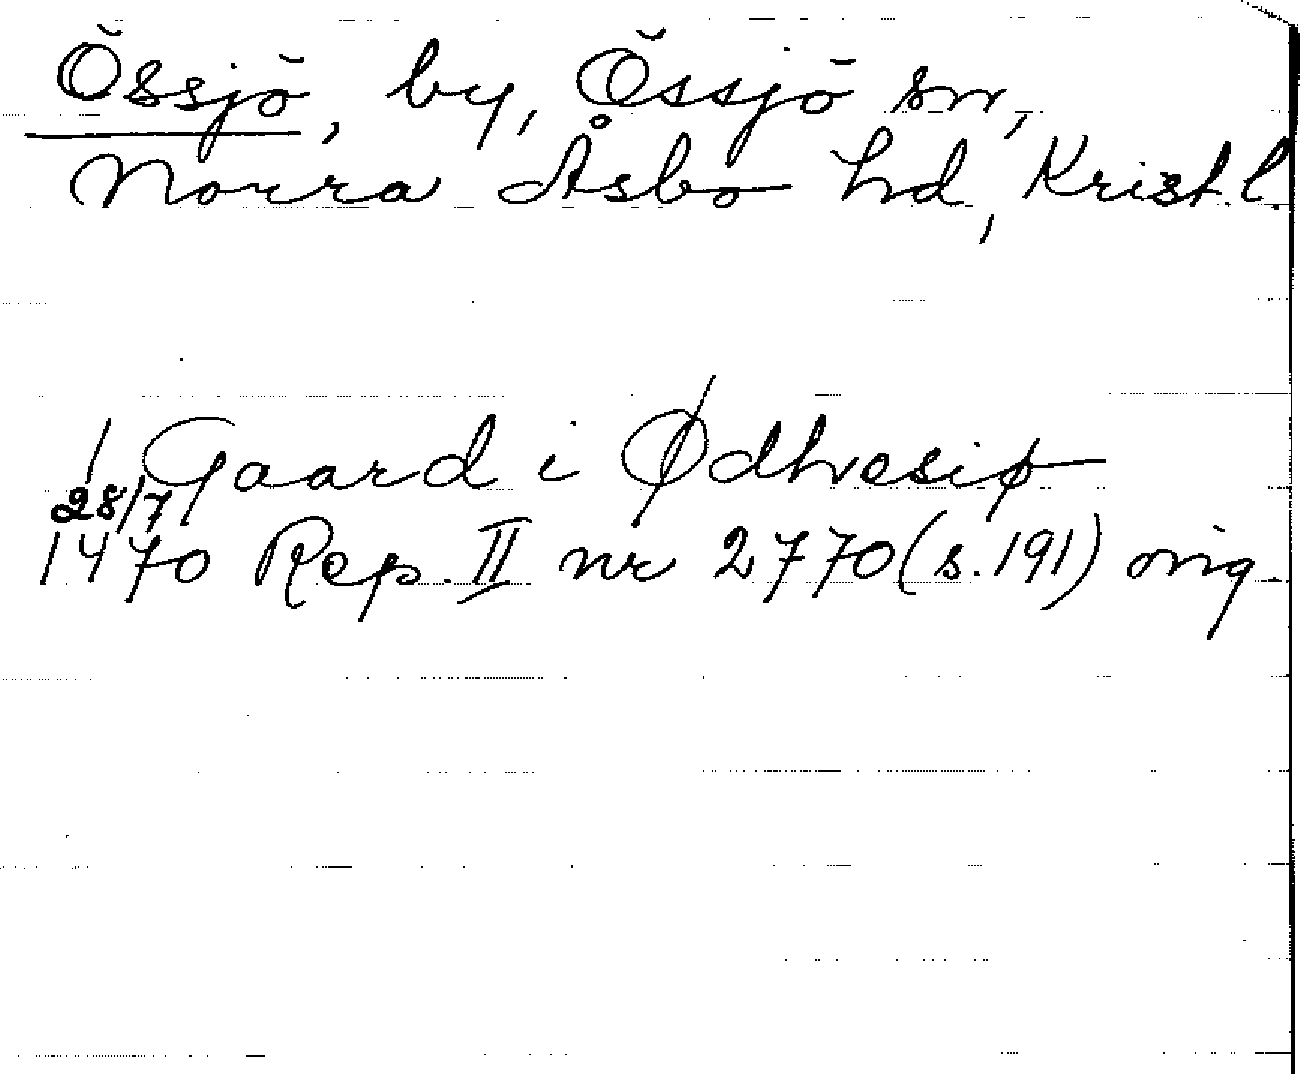 Össjö, by, Össjö sn,
Norra Åsbo hd, Krist.l.
1 Gaard i Ødhvesiø
28/7
1470 Rep. II nr 2770 (s. 191) orig.